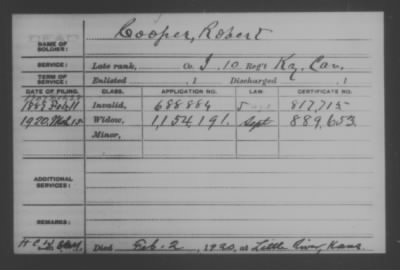 DEAD
Cooper, Robert
NAME OF SOLDIER:
SERVICE: Late rank, Co. I 10 Reg't Ky. Cav.
TERM OF SERVICE: Enlisted , 1 Discharged , 1
DATE OF FILING. CLASS. APPLICATION NO. LAW. CERTIFICATE NO.
1889 Feb 11 Invalid, 688884 817,715
1920, Mch 15 Widow, 1,154,191. Sept 889,653
Minor,
ADDITIONAL SERVICES:
REMARKS:
Died Feb. 2, 1920, at Little River, Kans.